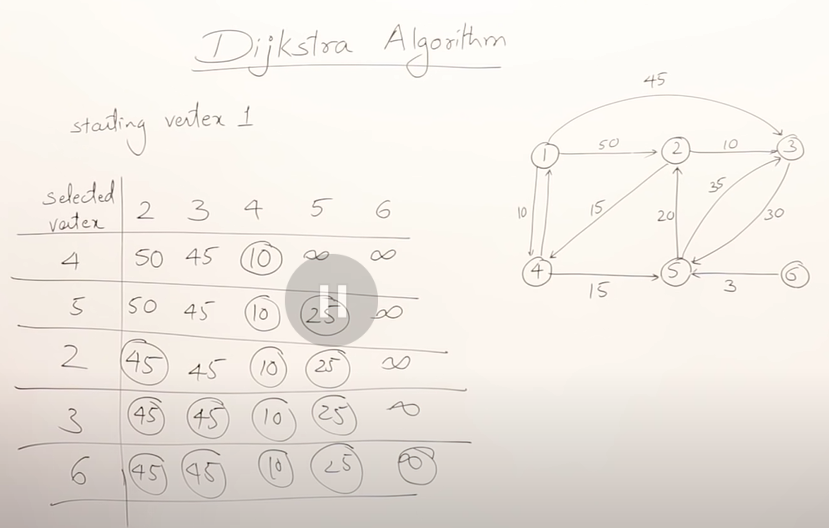 Dijkstra Algorithm
starting vertex 1
selected vertex 2 3 4 5 6
4 50 45 10 ∞ ∞
5 50 45 10 25 ∞
2 45 45 10 25 ∞
3 45 45 10 25 ∞
6 45 45 10 25 ∞
45
1 50 2 10 3
10 15 20 35 30
4 15 5 3 6